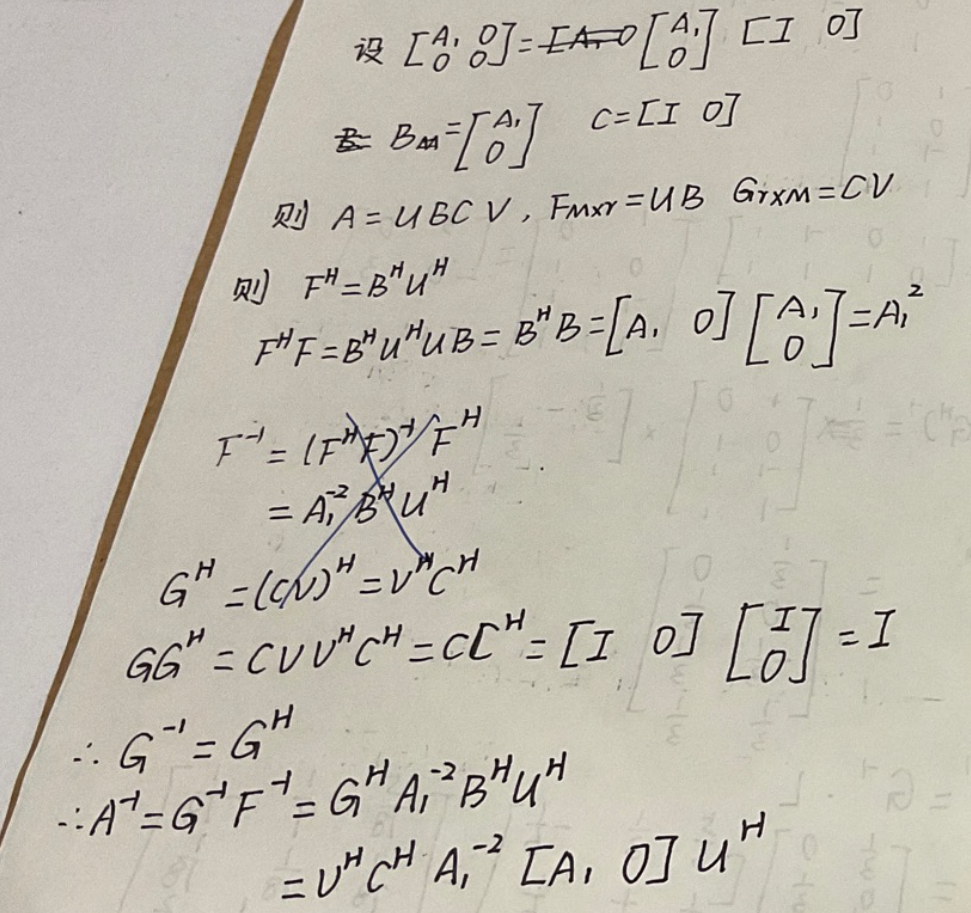 设 [A₁ 0 0 0] = [A₁ 0] [I 0]
B = [A₁ 0] C = [I 0]
则 A = UBCV, F_{M×r} = UB G_{r×M} = CV
则 F^H = B^H U^H
F^H F = B^H U^H U B = B^H B = [A₁ 0] [A₁ 0] = A₁²
F^{-1} = (F^H F)^{-1} F^H
= A₁^{-2} B^H U^H
G^H = (CV)^H = V^H C^H
GG^H = CVV^H C^H = CC^H = [I 0] [I 0] = I
∴ G^{-1} = G^H
∴ A^{-1} = G^{-1} F^{-1} = G^H A₁^{-2} B^H U^H
= V^H C^H A₁^{-2} [A₁ 0] U^H